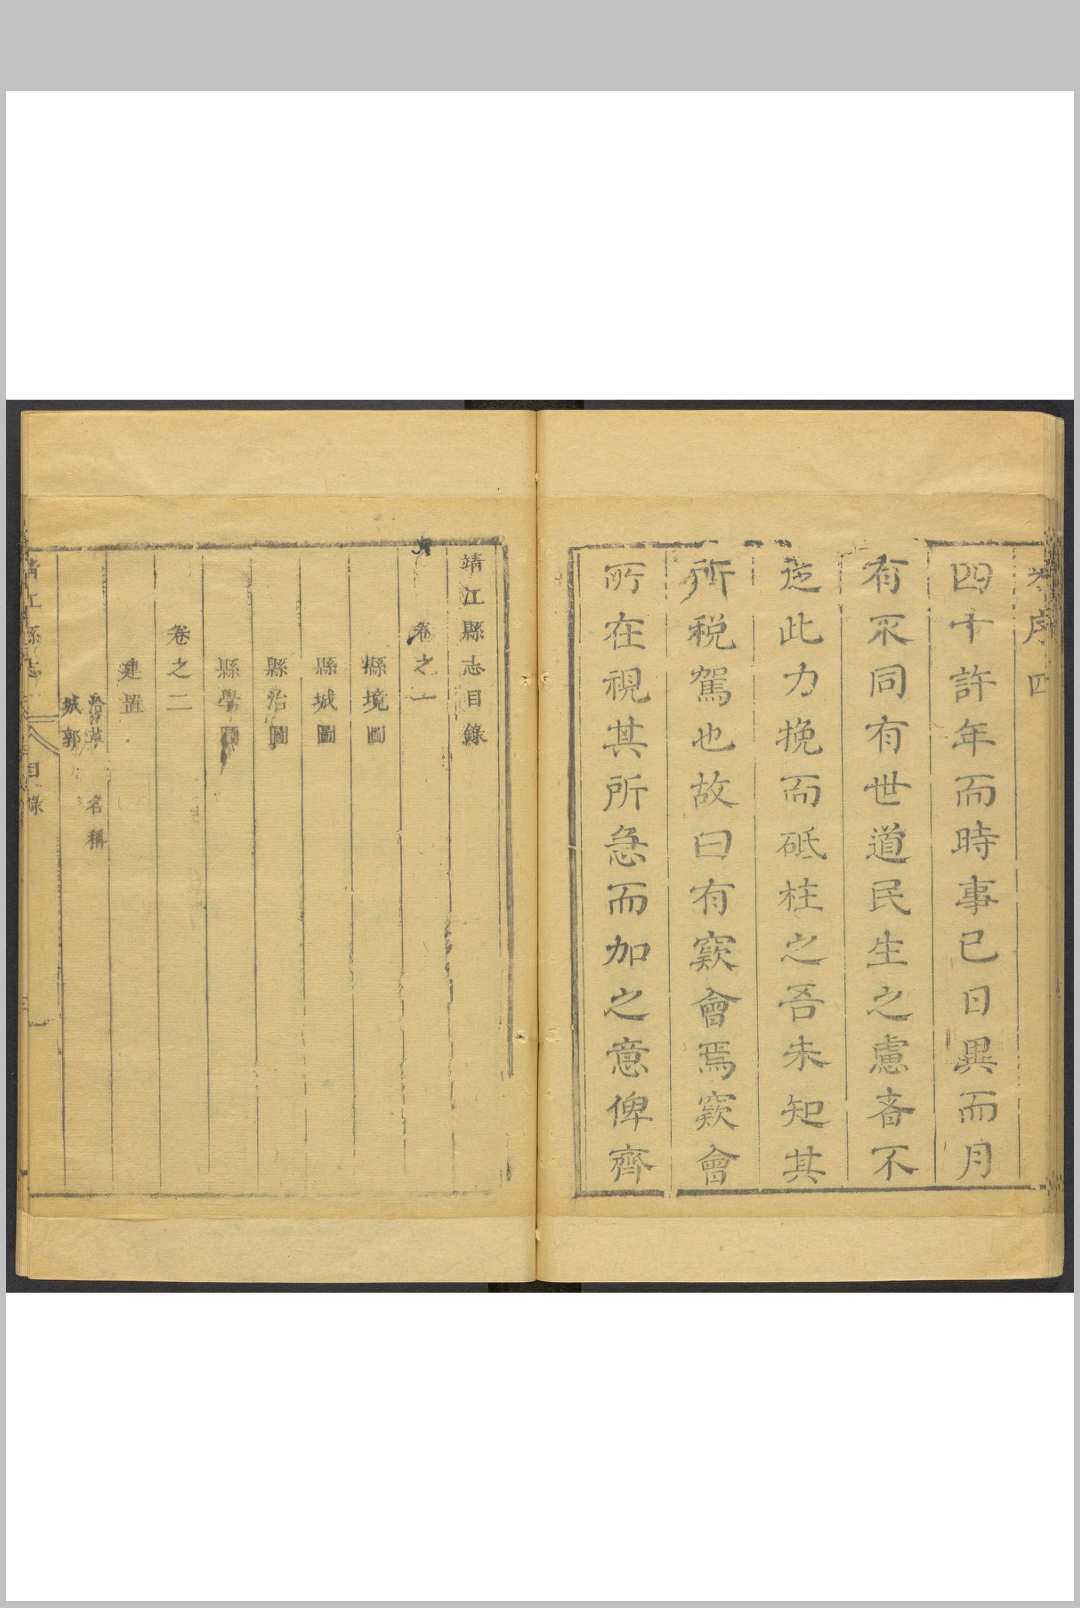 序四
四十許年而時事已日異而月
有不同有世道民生之慮者不
從此力挽而砥柱之吾未知其
所稅駕也故曰有窽會焉窽會
所在視其所急而加之意俾齊
靖江縣志目錄
卷之一
縣境圖
縣城圖
縣治圖
縣學圖
卷之二
建置
沿革 名稱
城郭
靖江縣志 目錄 一